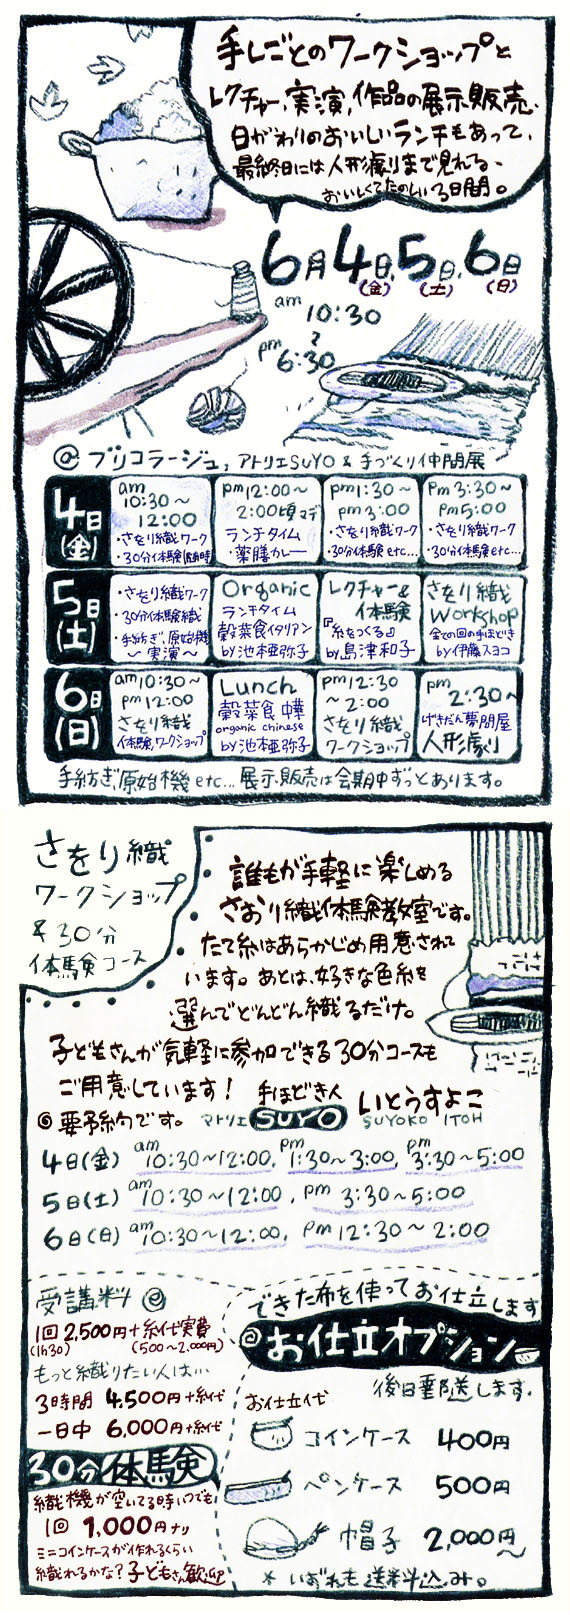 手しごとのワークショップと
レクチャー、実演、作品の展示販売、
日がわりのおいしいランチもあって、
最終日には人形劇まで見れる、
おいしくてたのしい3日間。
6月4日、5日、6日
(金) (土) (日)
am
10:30
～
pm
6:30
@ ブリコラージュ, アトリエSUYO & 手づくり仲間展
4日
(金)
am
10:30～
12:00
・さをり織ワーク
・30分体験
pm12:00～
2:00頃マデ
ランチタイム
・薬膳カレー
pm1:30～
pm3:00
・さをり織ワーク
・30分体験etc...
pm3:30～
pm5:00
・さをり織ワーク
・30分体験etc...
5日
(土)
・さをり織ワーク
・30分体験織
・手紡ぎ、原始機
～実演～
Organic
ランチタイム
穀菜食イタリアン
by池本亜弥子
レクチャー&
体験
『糸をつくる』
by島津和子
さをり織
Workshop
全ての回の手ほどき
by伊藤スヨコ
6日
(日)
am10:30～
pm12:00
さをり織
体験ワークショップ
Lunch
穀菜食 中華
organic chinese
by池本亜弥子
pm12:30
～2:00
さをり織
ワークショップ
pm
2:30～
げきだん夢問屋
人形劇
手紡ぎ、原始機etc... 展示、販売は会期中ずっとあります。
さをり織
ワークショップ
& 30分
体験コース
誰もが手軽に楽しめる
さおり織体験教室です。
たて糸はあらかじめ用意されて
います。あとは、好きな色糸を
選んでどんどん織るだけ。
子どもさんが気軽に参加できる30分コースも
ご用意しています！
手ほどき人
◎要予約です。
アトリエ SUYO いとうすよこ
SUYOKO ITOH
4日(金) am10:30～12:00, pm1:30～3:00, pm3:30～5:00
5日(土) am10:30～12:00, pm3:30～5:00
6日(日) am10:30～12:00, pm12:30～2:00
受講料@
1回 2,500円+糸代実費
(1h30) (500～2,000円)
もっと織りたい人は...
3時間 4,500円+糸代
一日中 6,000円+糸代
30分体験
織機が空いてる時いつでも
1回 1,000円ナリ
ミニコインケースが作れるくらい
織れるかな? 子どもさん歓迎
できた布を使ってお仕立します
@お仕立オプション
後日郵送します。
お仕立代
コインケース 400円
ペンケース 500円
帽子 2,000円～
* いずれも送料込み。